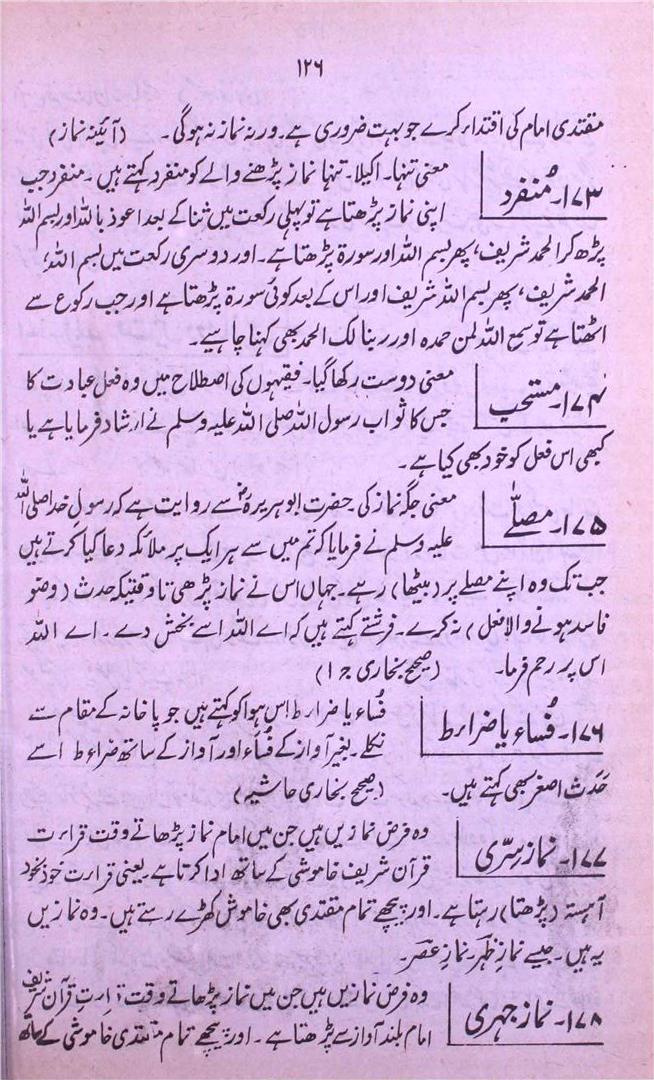 ۱۲۶
مقتدی امام کی اقتدا کرے جو بہت ضروری ہے۔ ورنہ نماز نہ ہوگی۔ (آئینہ نماز)
۱۷۳۔ مُنفرد
معنی تنہا۔ اکیلا۔ تنہا نماز پڑھنے والے کو منفرد کہتے ہیں۔ منفرد جب
اپنی نماز پڑھتا ہے تو پہلی رکعت میں ثنا کے بعد اعوذ باللہ اور بسم اللہ
پڑھ کر الحمد شریف، پھر بسم اللہ اور سورۃ پڑھتا ہے۔ اور دوسری رکعت میں بسم اللہ،
الحمد شریف، پھر بسم اللہ شریف اور اس کے بعد کوئی سورۃ پڑھتا ہے اور جب رکوع سے
اٹھتا ہے تو سمع اللہ لمن حمدہ اور ربنا لک الحمد بھی کہنا چاہیے۔
۱۷۴۔ مستحب
معنی دوست رکھا گیا۔ فقیہوں کی اصطلاح میں وہ فعل عبادت کا
جس کا ثواب رسول اللہ صلی اللہ علیہ وسلم نے ارشاد فرمایا ہے یا
کبھی اس فعل کو خود بھی کیا ہے۔
۱۷۵۔ مصلّے
معنی جگہ نماز کی۔ حضرت ابوہریرہؓ سے روایت ہے کہ رسولِ خدا صلی اللہ
علیہ وسلم نے فرمایا کہ تم میں سے ہر ایک پر ملائکہ دعا کیا کرتے ہیں
جب تک وہ اپنے مصلے پر (بیٹھا) رہے۔ جہاں اس نے نماز پڑھی تا وقتیکہ حدث (وضو
فاسد ہونے والا فعل) نہ کرے۔ فرشتے کہتے ہیں کہ اے اللہ اسے بخش دے۔ اے اللہ
اس پر رحم فرما۔ (صحیح بخاری ج ۱)
۱۷۶۔ فُساء یا ضراط
فُساء یا ضراط اس ہوا کو کہتے ہیں جو پاخانہ کے مقام سے
نکلے۔ بغیر آواز کے فُسَاء اور آواز کے ساتھ ضراط اسے
حَدَث اصغر بھی کہتے ہیں۔ (صحیح بخاری حاشیہ)
۱۷۷۔ نماز سِرّی
وہ فرض نمازیں ہیں جن میں امام نماز پڑھاتے وقت قراءت
قرآن شریف خاموشی کے ساتھ ادا کرتا ہے۔ یعنی قراءت خود بخود
آہستہ (پڑھتا) رہتا ہے۔ اور پیچھے تمام مقتدی بھی خاموش کھڑے رہتے ہیں۔ وہ نمازیں
یہ ہیں۔ جیسے نمازِ ظہر۔ نمازِ عصر۔
۱۷۸۔ نماز جہری
وہ فرض نمازیں ہیں جن میں نماز پڑھاتے وقت قراءتِ قرآن شریف
امام بلند آواز سے پڑھتا ہے۔ اور پیچھے تمام مقتدی خاموشی کے ساتھ